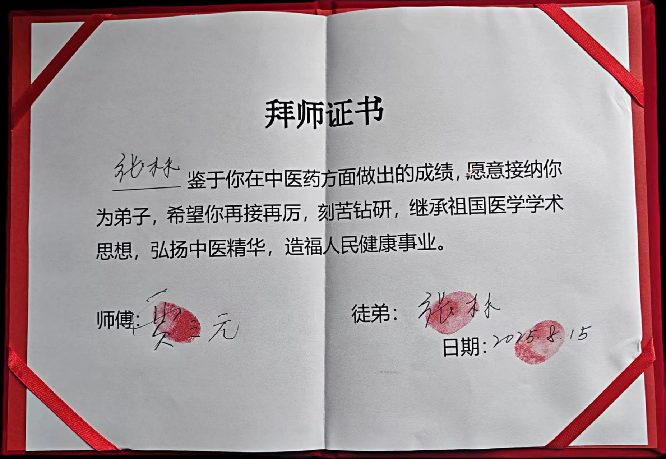 拜师证书
张林 鉴于你在中医药方面做出的成绩，愿意接纳你
为弟子，希望你再接再厉，刻苦钻研，继承祖国医学学术
思想，弘扬中医精华，造福人民健康事业。
师傅：三元
徒弟：张林
日期：2025.8.15